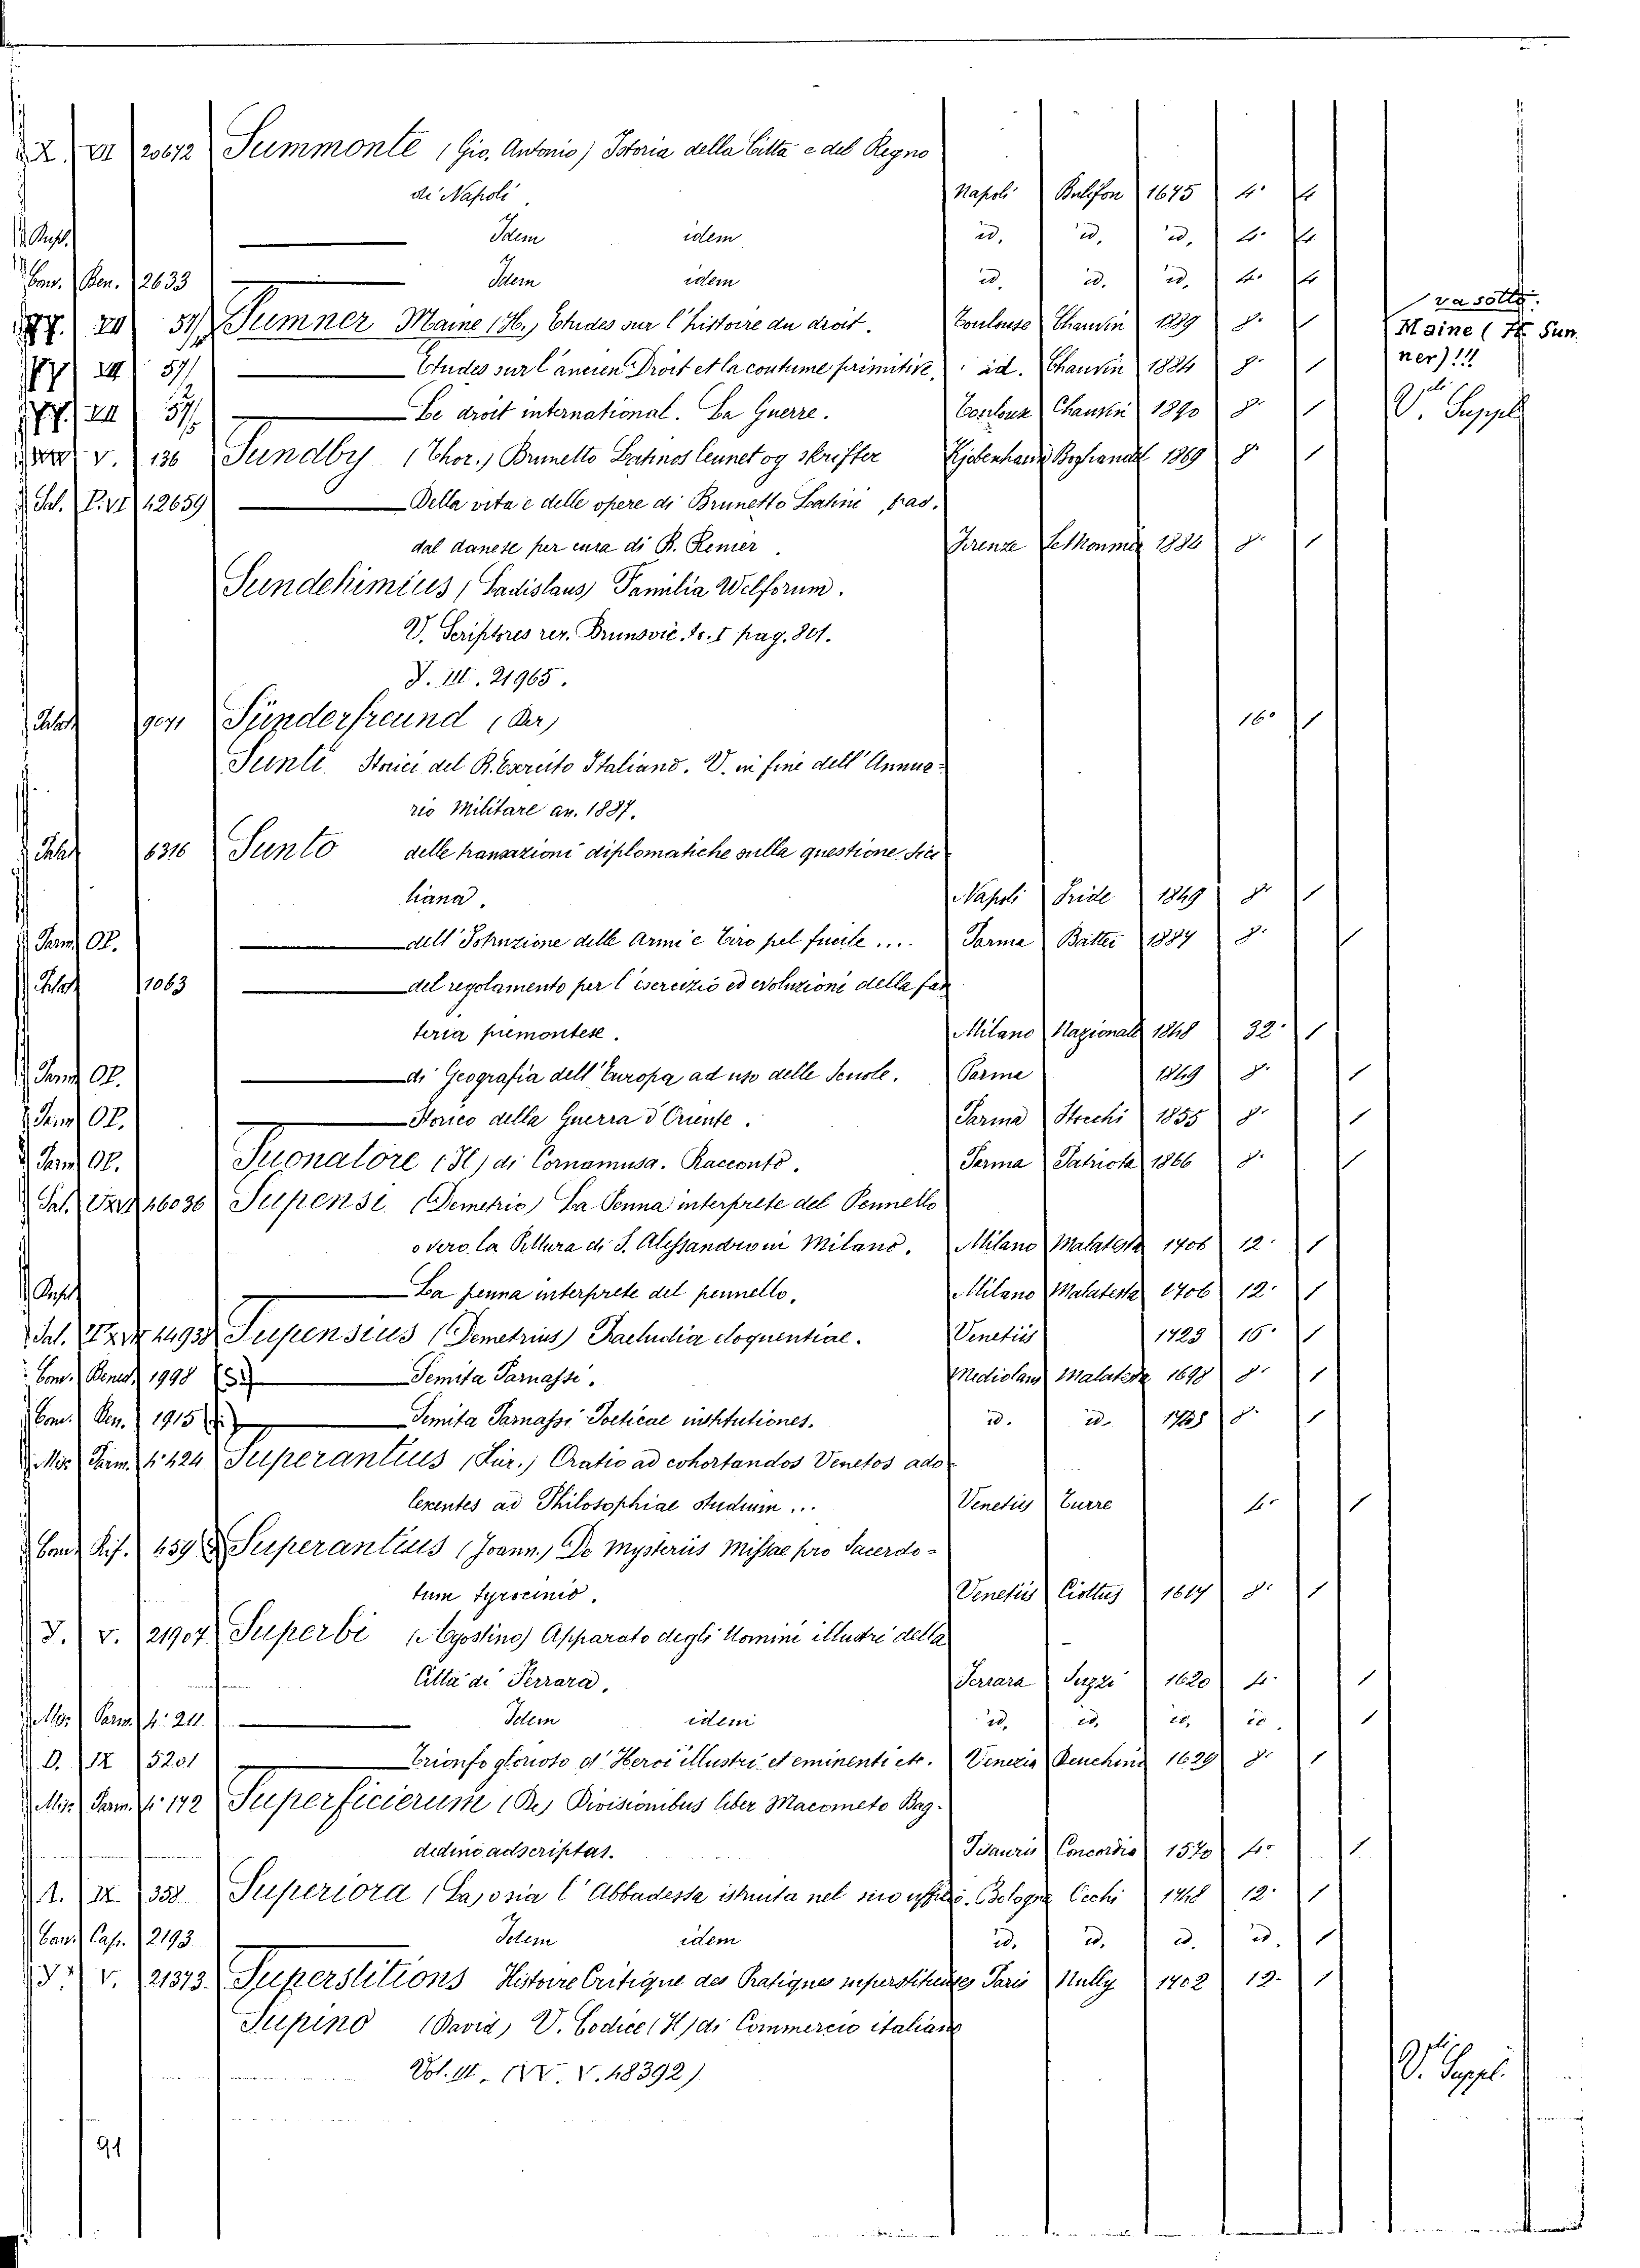 Z. VII 20672 Summonte (Gio. Antonio) Istoria della Città e del Regno
di Napoli Napoli Bulifon 1675 4° 4
Suppl. Idem idem id. id. id. 4° 4
Conv. Ben. 2633 Idem idem id. id. id. 4° 4
VII 57/ Sumner Maine (H.) Etudes sur l'histoire du droit. Toulouse Chauvin 1889 8° 1
VII 57/ Etudes sur l'ancien Droit et la coutume primitive, id. Chauvin 1884 8° 1
VII 57/ Le droit international. La Guerre. Toulouse Chauvin 1890 8° 1
va sotto:
Maine (H. Sum
ner)!!!
V. Suppl
V. 136 Sundby (Thor.) Brunetto Latinos levnet og skrifter Kjobenhavn Boghandel 1869 8° 1
Sal. P. VI 42659 Della vita e delle opere di Brunetto Latini, trad.
dal danese per cura di R. Renier. Firenze Le Monnier 1884 8° 1
Sundehimius (Ladislaus) Familia Welforum.
V. Scriptores rer. Brunsvic. to. I pag. 801.
V. III. 21965.
9071 Sünderfreund (Der) 16° 1
Sunti Storici del R. Esercito Italiano. V. in fine dell'Annua-
rio Militare an. 1887.
6316 Sunto delle transazioni diplomatiche sulla questione Sici
liana. Napoli 1849 8° 1
Parm. OP. dell'Istruzione delle Armi e Tiro pel fucile.... Parma Battei 1887 8° 1
1063 del regolamento per l'esercizio ed evoluzioni della fan
teria piemontese. Milano Nazionale 1848 32° 1
Parm. OP. di Geografia dell'Europa ad uso delle Scuole. Parma 1849 8° 1
Parm. OP. Storico della Guerra d'Oriente. Parma Stocchi 1855 8° 1
Parm. OP. Suonatore (Il) di Cornamusa. Racconto. Parma Patriota 1866 8° 1
Sal. 16036 Supensi (Demetrio) La Penna interprete del Pennello
overo la Pittura di S. Alessandro in Milano. Milano Malatesta 1706 12° 1
Suppl La penna interprete del pennello. Milano Malatesta 1706 12° 1
Sal. 14938 Supensius (Demetrius) Eloquentiae. Venetiis 1723 16° 1
Conv. Bened. 1998 Semita Parnassi. Mediolani Malatesta 1698 8° 1
Conv. Ben. 1915 Semita Parnassi Poeticae institutiones. id. id. 8° 1
Misc. Parm. 4° 424 Superantius (Jur.) Oratio ad cohortandos Venetos ado-
lexentes ad Philosophiae studium... Venetiis Turre 4° 1
Conv. Rif. 459 Superantius (Joann.) De Mysteriis Missae pro Sacerdo-
tum tyrocinio. Venetiis Ciottus 1617 8° 1
V. V. 21907 Superbi (Agostino) Apparato degli Uomini illustri della
Città di Ferrara. Ferrara Suzzi 1620 4° 1
Misc. Parm. 4° 211 Idem idem id. id. id. id. 1
D. IX 5201 Trionfo glorioso d'Heroi illustri et eminenti etc. Venezia Deuchino 1629 8° 1
Misc. Parm. 4° 172 Superficierum (De) Divisionibus liber Macometo Bag-
dedino adscriptas. Pisauris Concordia 1570 4° 1
A. IX. 358 Superiora (La) osia l'Abbadessa istruita nel suo uffizio. Bologna Cecchi 1748 12° 1
Conv. Cap. 2193 Idem idem id. id. id. id. 1
V. 21373 Superstitions Histoire Critique des Pratiques superstitieuses Paris Nully 1702 12° 1
Supino (David) V. Codice (Il) di Commercio italiano
Vol. III. V. 48392)
V. Suppl.
91